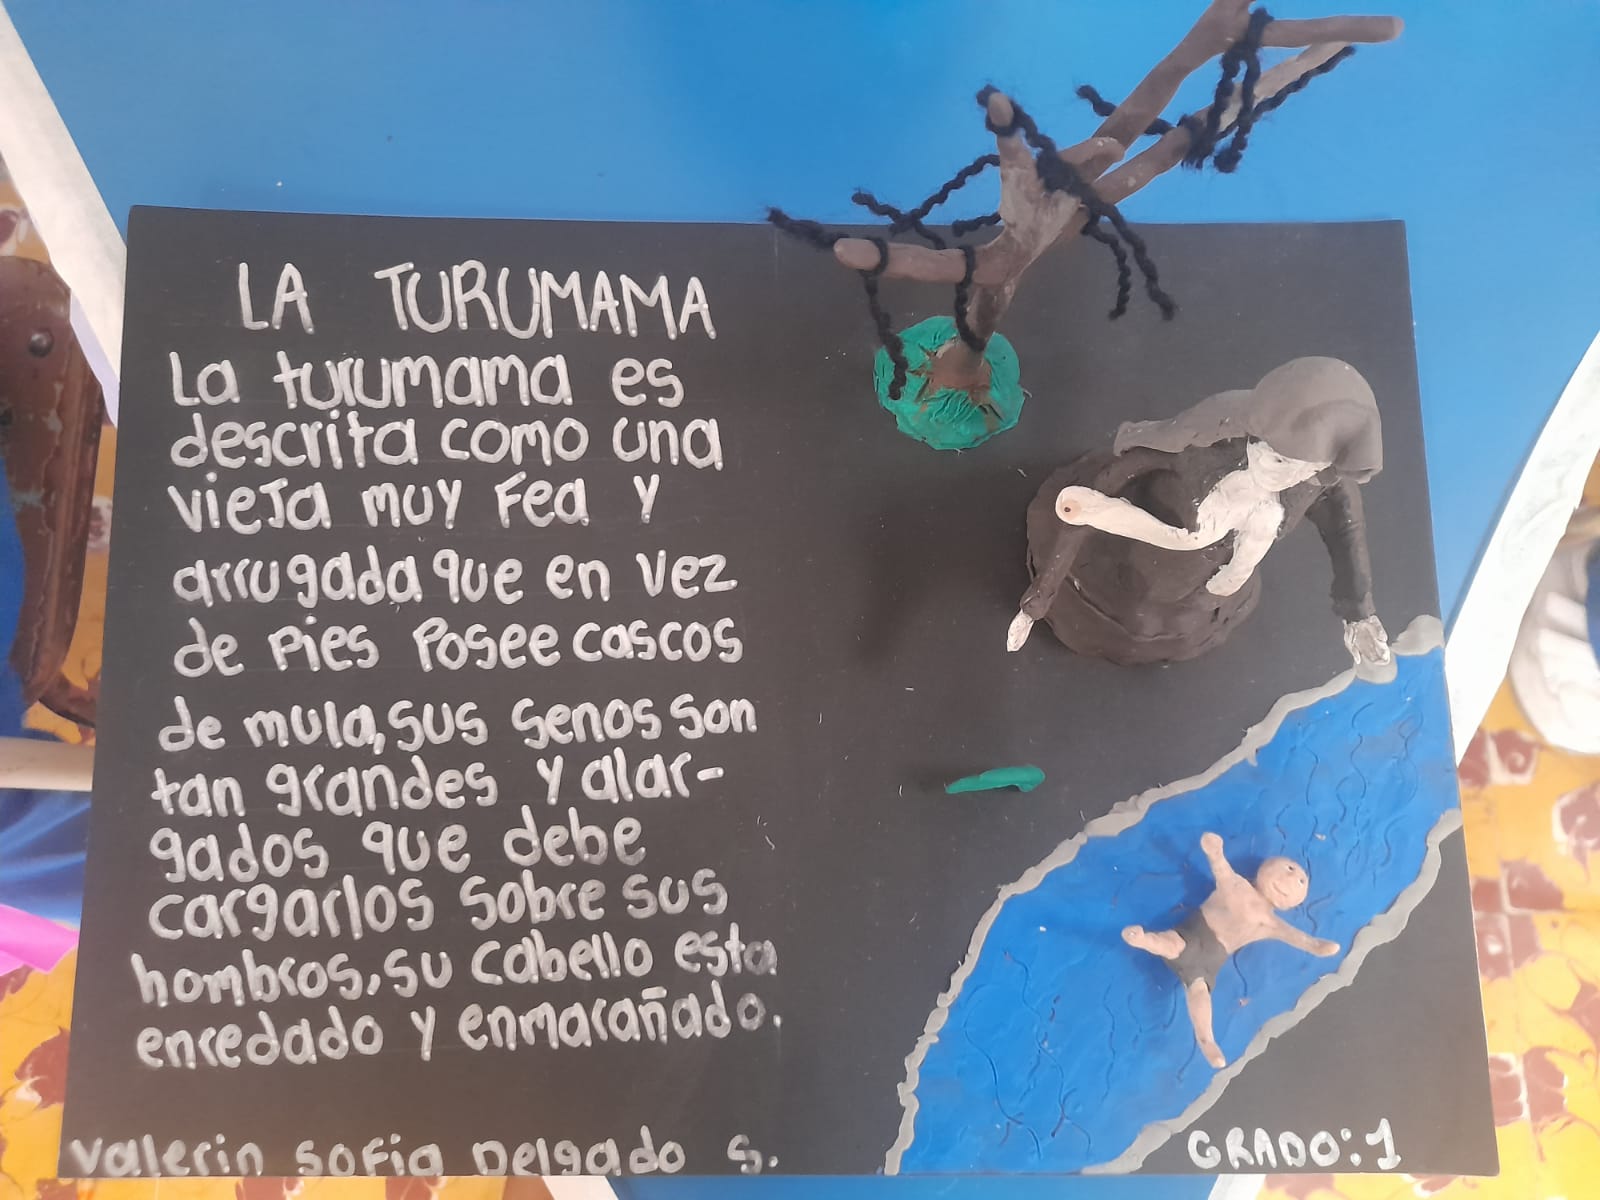 LA TURUMAMA
La turumama es
descrita como una
vieja muy fea y
arrugada que en vez
de pies posee cascos
de mula, sus senos son
tan grandes y alar-
gados que debe
cargarlos sobre sus
hombros, su cabello esta
enredado y enmarañado.
Valerin Sofia Delgado S.
GRADO:1